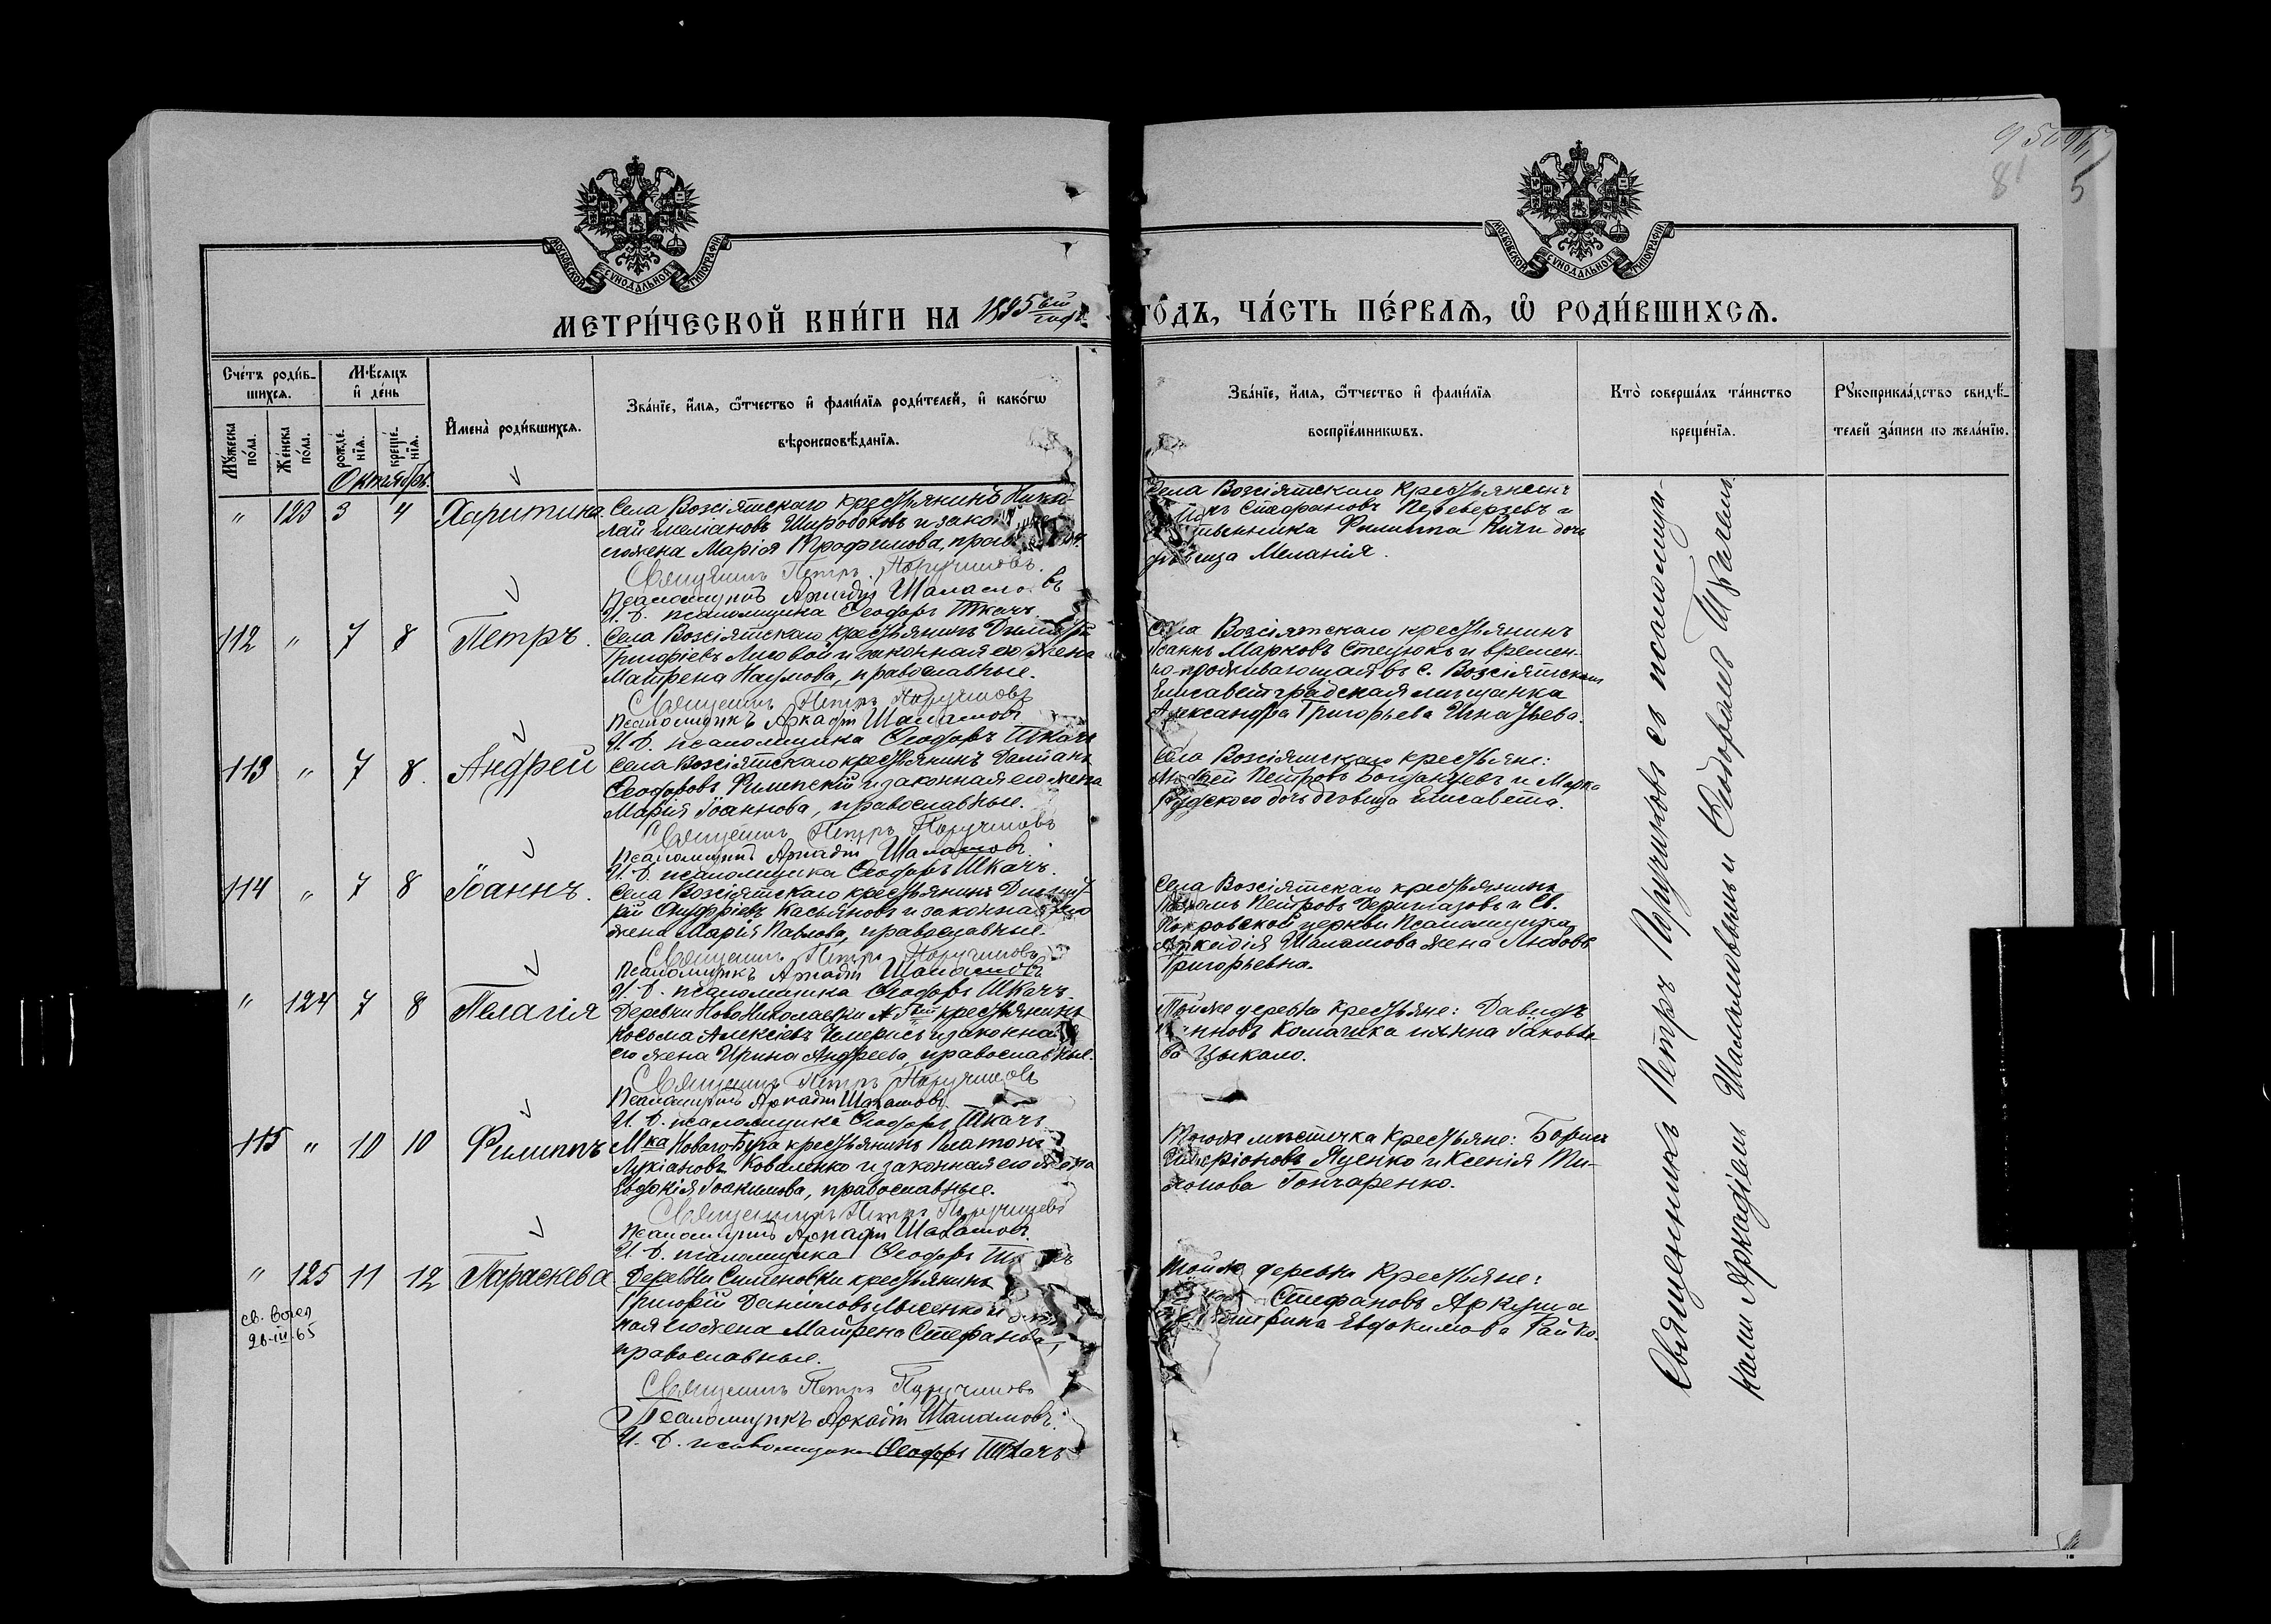 95
81
5
МОСКОВСКОЙ СѴНОДАЛЬНОЙ ТИПОГРАФІИ
МОСКОВСКОЙ СѴНОДАЛЬНОЙ ТИПОГРАФІИ
МЕТРИ́ЧЕСКОЙ КНИ́ГИ НА 1895 ый годъ
ГО́ДЪ, ЧА́СТЬ ПЕ́РВАѦ, Ѡ҆ РОДИ́ВШИХСѦ.
Сче́тъ роди́в-
шихсѧ.
Мѣ́сѧцъ
и҆ де́нь
Мꙋ́жеска по́ла.
Же́нска по́ла.
рожде́нїѧ.
креще́нїѧ.
И҆мена̀ роди́вшихсѧ.
Зва́нїе, и҆́мѧ, ѻ҆́тчество и҆ фами́лїѧ роди́телей, и҆ како́гѡ
вѣроисповѣ́данїѧ.
Зва́нїе, и҆́мѧ, ѻ҆́тчество и҆ фами́лїѧ
воспрїе́мникѡвъ.
Кто̀ соверша́лъ та́инство
креще́нїѧ.
Рꙋкоприкла́дство свидѣ́-
телей за́писи по жела́нїю.
Октябрь.
" 123 3 4 Харитина. Села Возсіятскаго крестьянинъ Нико-
лай Емеліановъ Широбоковъ и
его жена Марія Трофимова,
Священникъ Петръ Поручиковъ.
Псаломщикъ Аркадій Шаламовъ
И. д. псаломщика Ѳеодоръ Ткачъ.
Села Возсіятскаго крестьянинъ
Стефановъ Переверзевъ и
Филиппа дочь
дѣвица Меланія.
112 " 7 8 Петръ. Села Возсіятскаго крестьянинъ Димитрій
Григоріевъ Лиговой и законная его жена
Матрена Наумова, православные.
Священникъ Петръ Поручиковъ
Псаломщикъ Аркадій Шаламовъ
И. д. псаломщика Ѳеодоръ Ткачъ
Села Возсіятскаго крестьянинъ
Іоаннъ Марковъ Стецюкъ и времен-
но-проживающая въ с. Возсіятскомъ
Елисаветградская мѣщанка
Александра Григорьева Игнатьева.
113 " 7 8. Андрей Села Возсіятскаго крестьянинъ Даміанъ
Ѳеодоровъ и законная его жена
Марія Іоаннова, православные.
Священникъ Петръ Поручиковъ
Псаломщикъ Аркадій Шаламовъ.
И. д. псаломщика Ѳеодоръ Ткачъ.
Села Возсіятскаго крестьяне:
Петровъ Богданцевъ и Марка
дочь дѣвица Елисавета.
114 " 7 8 Іоаннъ. Села Возсіятскаго крестьянинъ Димит-
рій Онуфріевъ Касьяновъ и законная его
жена Марія Павлова, православные.
Священникъ Петръ Поручиковъ
Псаломщикъ Аркадій Шаламовъ
И. д. псаломщика Ѳеодоръ Ткачъ.
Села Возсіятскаго крестьянинъ
Петровъ Дериглазовъ и Св.
Покровской церкви Псаломщика
Аркадія Шаламова жена Любовь
Григорьевна.
" 124 7 8 Пелагія Деревни НовоНиколаевки крестьянинъ
Косьма Алексіевъ Чемерисъ и законная
его жена Ирина Андреева, православные.
Священникъ Петръ Поручиковъ
Псаломщикъ Аркадій Шаламовъ
И. д. псаломщика Ѳеодоръ Ткачъ
Той же деревни крестьяне: Давидъ
Іоанновъ и Анна Іаковле-
ва Цыкало.
115 " 10 10 Филиппъ М-ка Новаго-Буга крестьянинъ Платонъ
Лукіановъ Коваленко и законная его жена
Евдокія Іоакимова, православные.
Священникъ Петръ Поручиковъ
Псаломщикъ Аркадій Шаламовъ.
И. д. псаломщика Ѳеодоръ
Того же мѣстечка крестьяне: Борисъ
Иларіоновъ Яценко и Ксенія
Гончаренко.
" 125 11 12 Параскева Деревни Симоновки крестьянинъ
Григорій Даніиловъ Лысенко и
ная его жена Матрена Стефанова,
православные.
Священникъ Петръ Поручиковъ
Псаломщикъ Аркадій Шаламовъ.
И. д. псаломщика Ѳеодоръ Ткачъ
Той же деревни крестьяне:
Стефановъ Аркуша
Евдокимова Райко.
св.
26-III-65
Священникъ Петръ Поручиковъ съ псаломщи-
ками Аркадіемъ Шаламовымъ и Ѳеодоромъ Ткачемъ